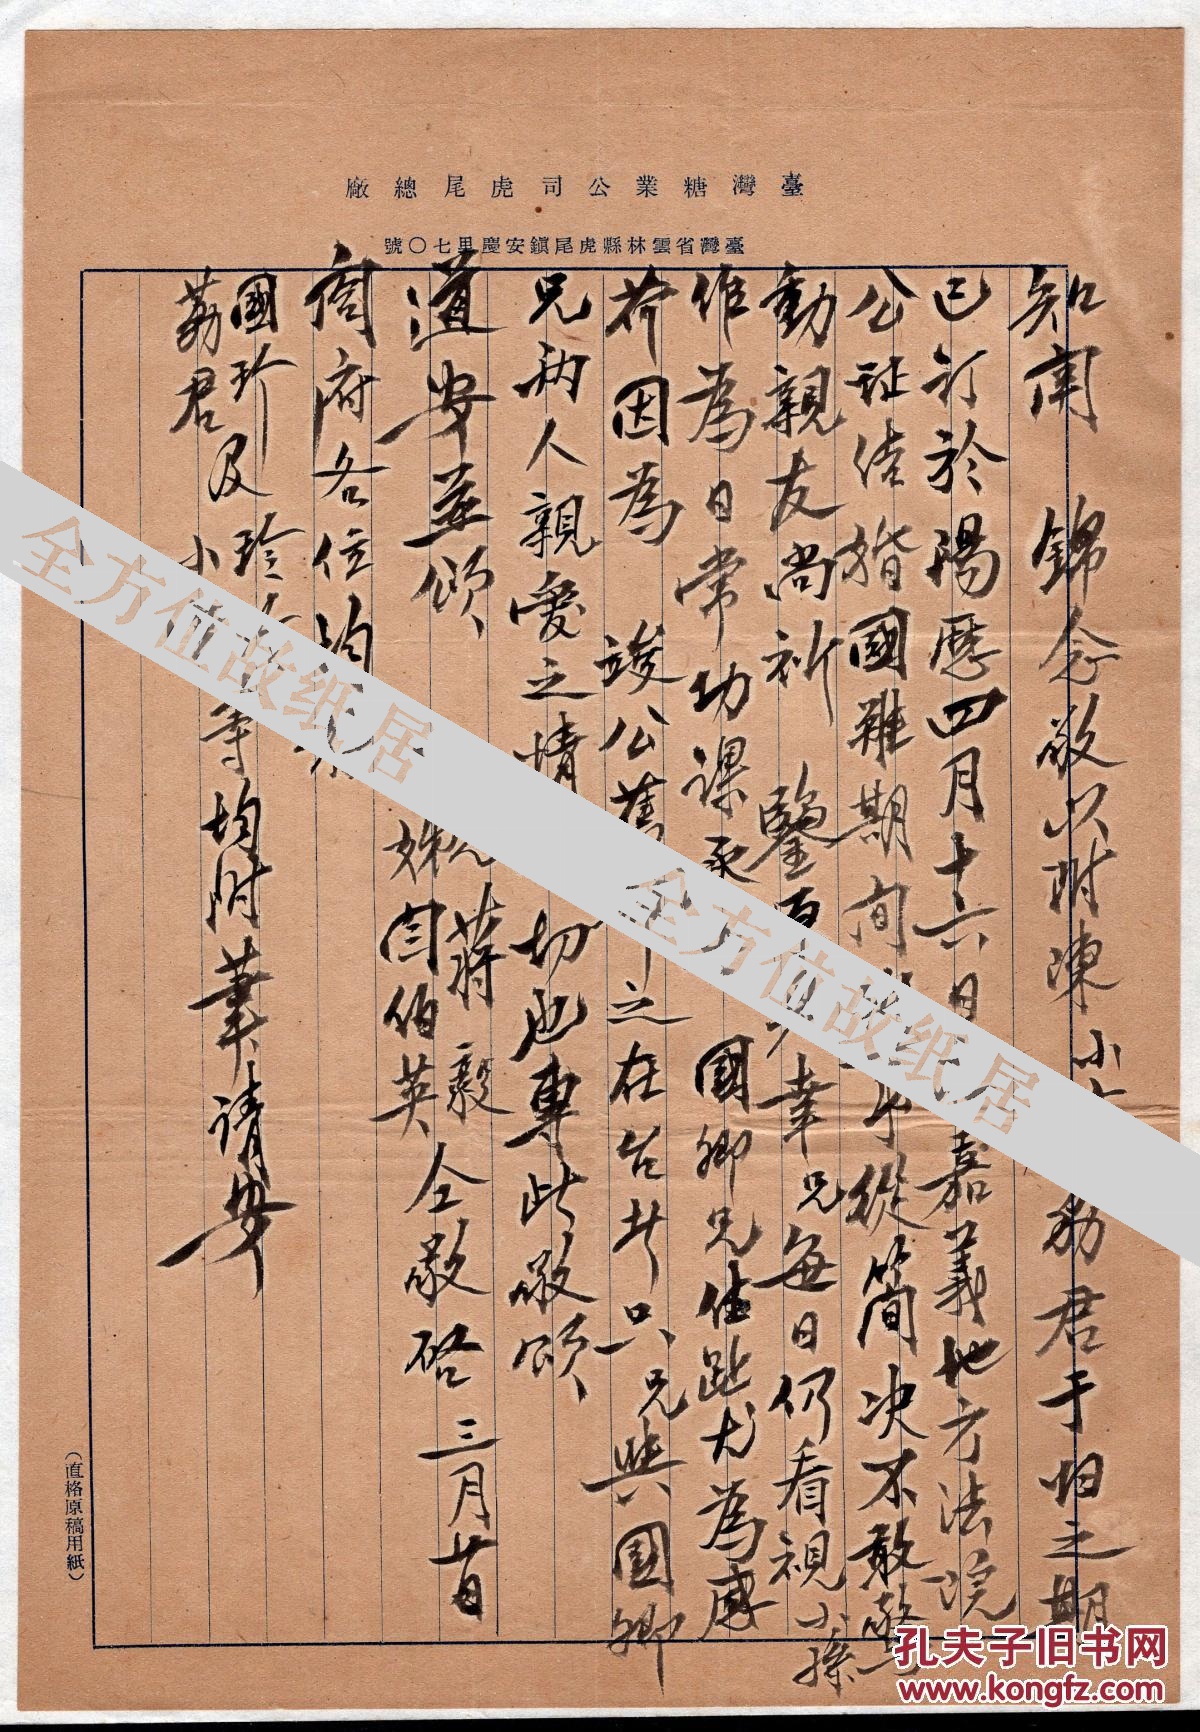 臺灣糖業公司虎尾總廠
臺灣省雲林縣虎尾鎮安慶里七〇號
知關 錦念敬以附陳小 勷君于归之期
已訂於陽曆四月十六日 嘉義地方法院
公証结婚國難期间 從簡决不敢驚
動親友尚祈 鑒原 幸兄每日仍看視小孫
作為日常功課承 國卿兄住趾尤為感
荷因為 竣公舊 之在台北只兄與國卿
兄两人親愛之情 切也專此敬頌
道安並頌
阎府各位均
蔣毅
姊闫伯英仝敬啓三月廿日
國珍及玲 等均附筆请安
荔君 小
(直格原稿用紙)
全方位故纸居
全方位故纸居
孔夫子旧书网
www.kongfz.com